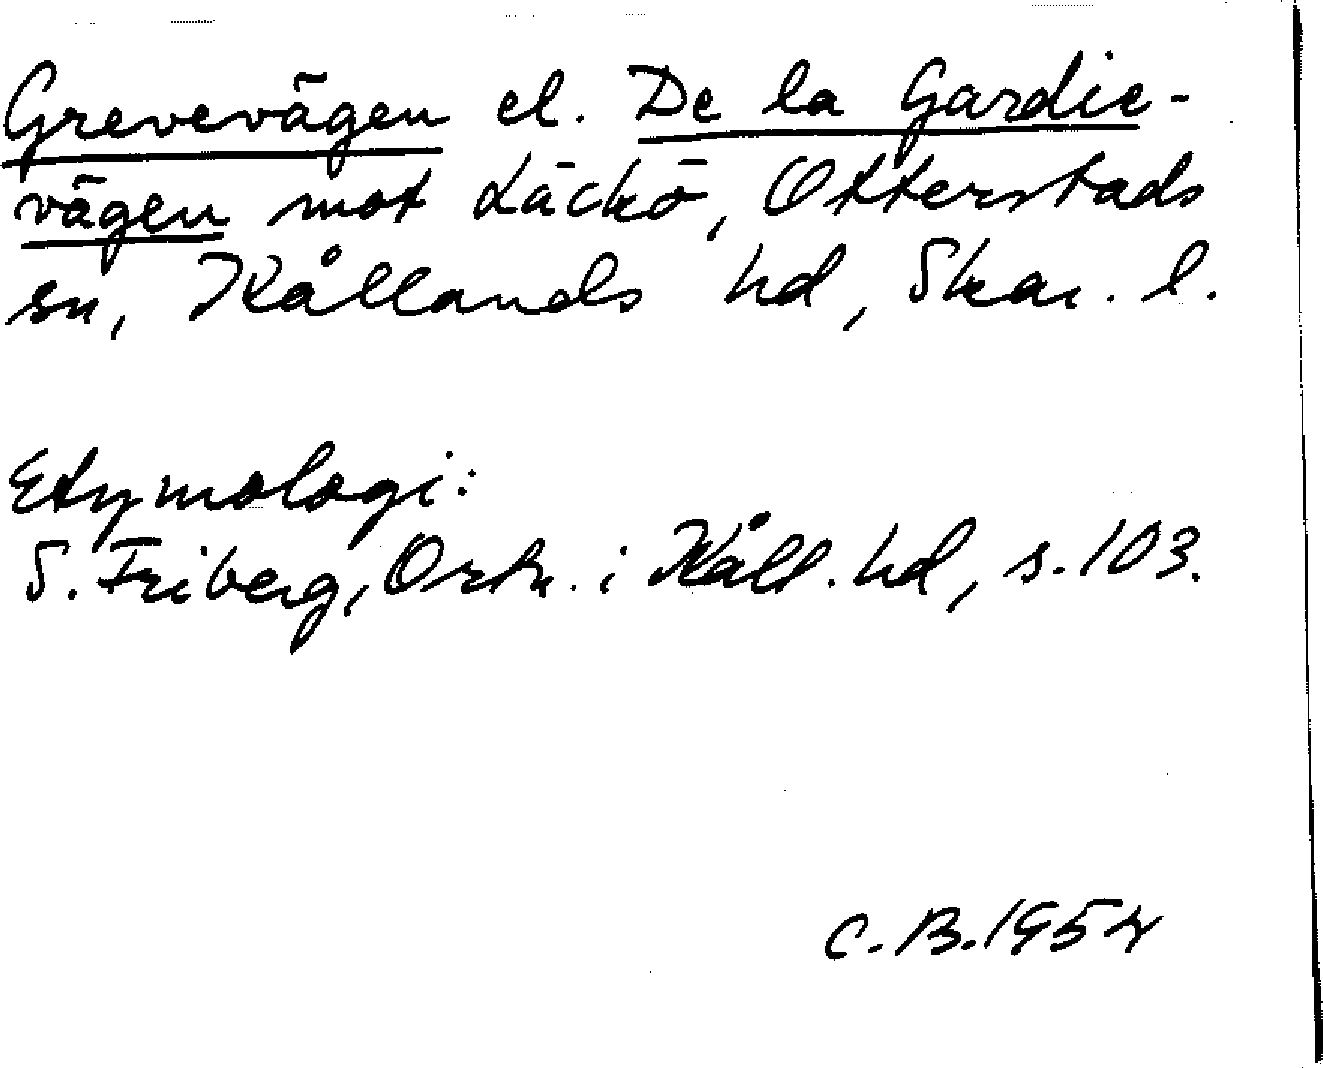 Grevevägen el. De la Gardie-
vägen mot Läckö, Otterstads
sn, Kållands hd, Skar. l.
Etymologi:
S. Friberg, Ortn. i Kåll. hd, s. 103.
C. B. 1954